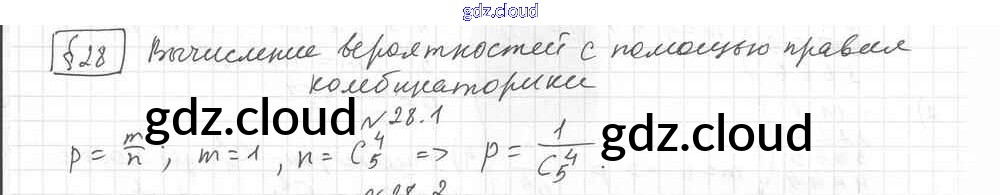 gdz.cloud
§28 Вычисление вероятностей с помощью правил
комбинаторики
gdz.cloud №28.1 gdz.cloud
p = m/n ; m = 1 , n = C₅⁴ => p = 1/C₅⁴ .
№28.2